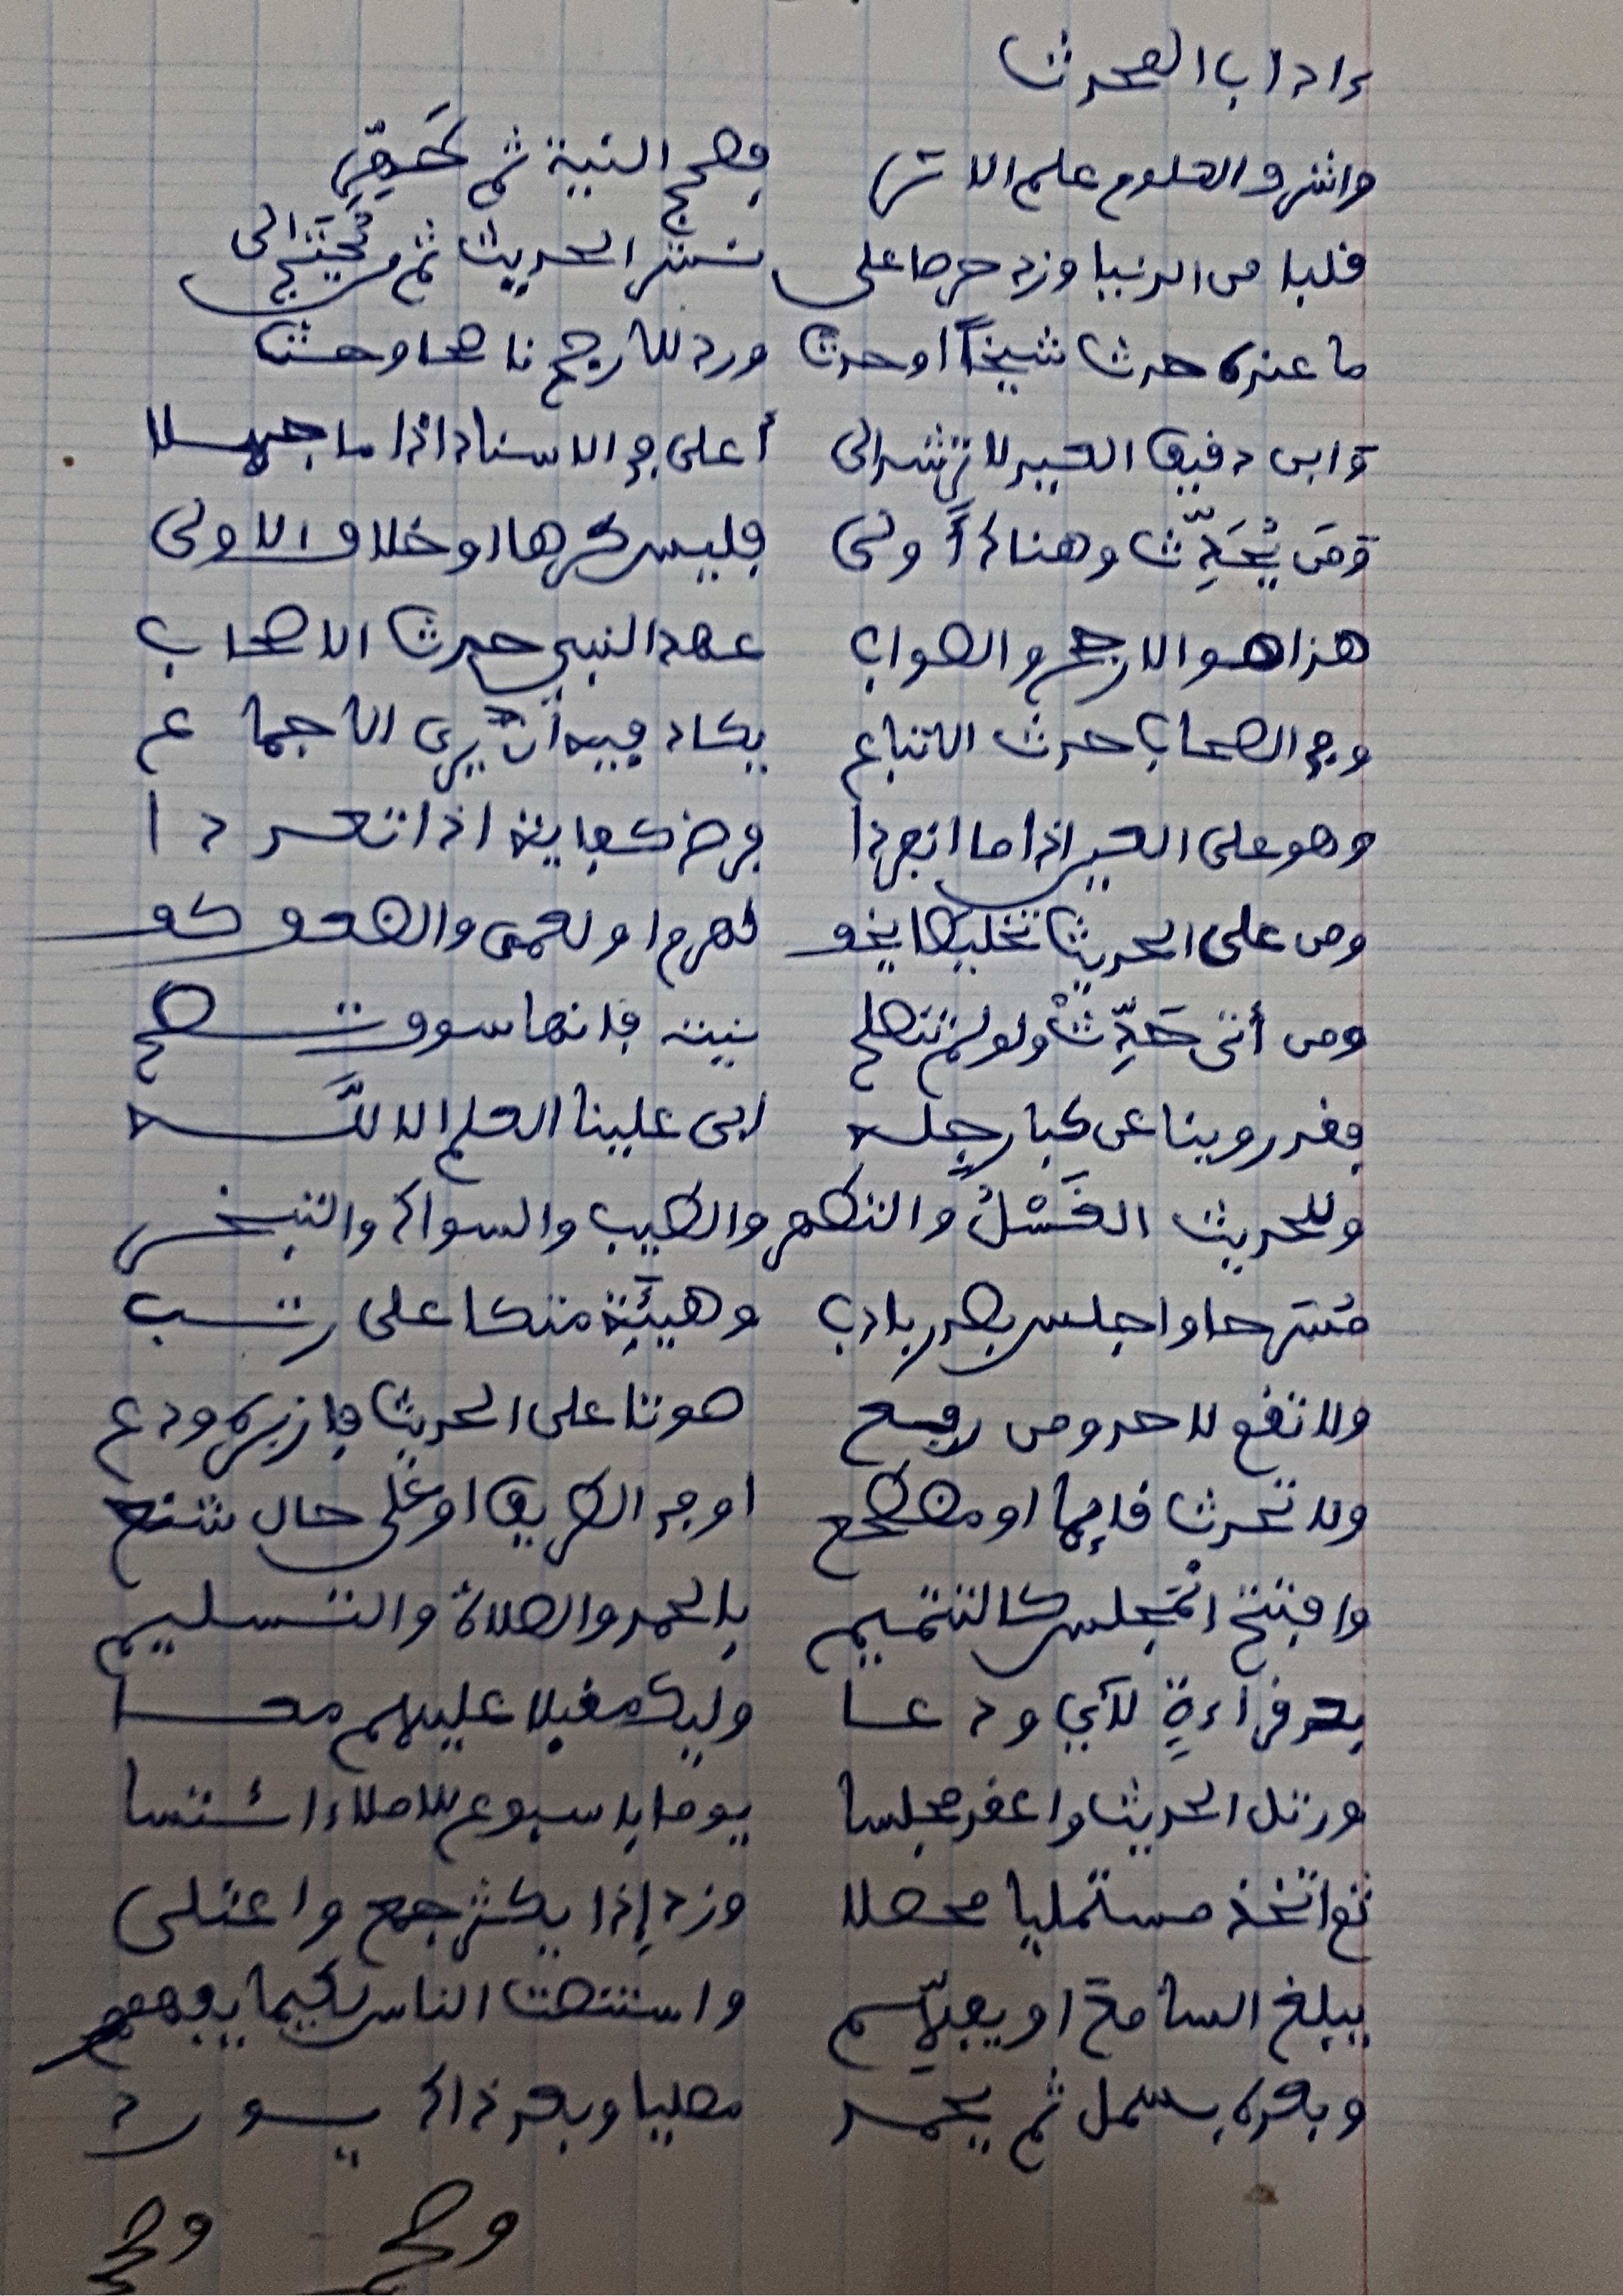 ءاداب المحدث
واشرف العلوم علم الاثر فصحح النية ثم طهر
قلبا من الدنيا وزد حرصا على نشر الحديث ثم من يحتج الى
ما عنده حدث شيخا او حدث ورد للأرجح ناصحا وحث
وابن دقيق العيد لا ترشد الى أعلى في الاسناد اذا ما جهلا
ومن يُحَدِّث وهناك أَولى فليس كرها او خلاف الاولى
هذا هو الارجح والصواب عهد النبي حدث الاصحاب
وفي الصحاب حدث الاتباع يكاد فيه أن يرى الاجماع
وهو على العين اذا ما انفردا فرض كفاية اذا تعددا
ومن على الحديث تخليطا يخف لهرم او لعمى والضعف كف
ومن أتى حَدِّثْ ولو لم تنصلح نيته فإنها سوف تصح
فقد روينا عن كبار جِله ابى علينا العلم الا للَّه
وللحديث الغَسْلُ والتطهر والطيب والسواك والتبخر
مُسَرِّحا واجلس بصدر بادب وهيئَةٍ متكا على رتب
ولا تقم لاحد ومن رفع صوتا على الحديث فازبره ودع
ولا تحدث قائما او مضطجع او في الطريق او على حال شنع
وافتتح المجلس كالتتميم بالحمد والصلاة والتسليم
بعد قراءةٍ لآيٍ ودعا وليك مقبلا عليهم معا
ورتل الحديث واعقد مجلسا يوما باسبوع للاملاء ائتسا
ثم اتخذ مستمليا محصلا وزد إذا يكثر جمع واعتلى
يبلغ السامعَ او يفهِّم واستنصت الناس لكيما يفهموا
وبعده بسمل ثم يحمد مصليا وبعد ذاك يورد